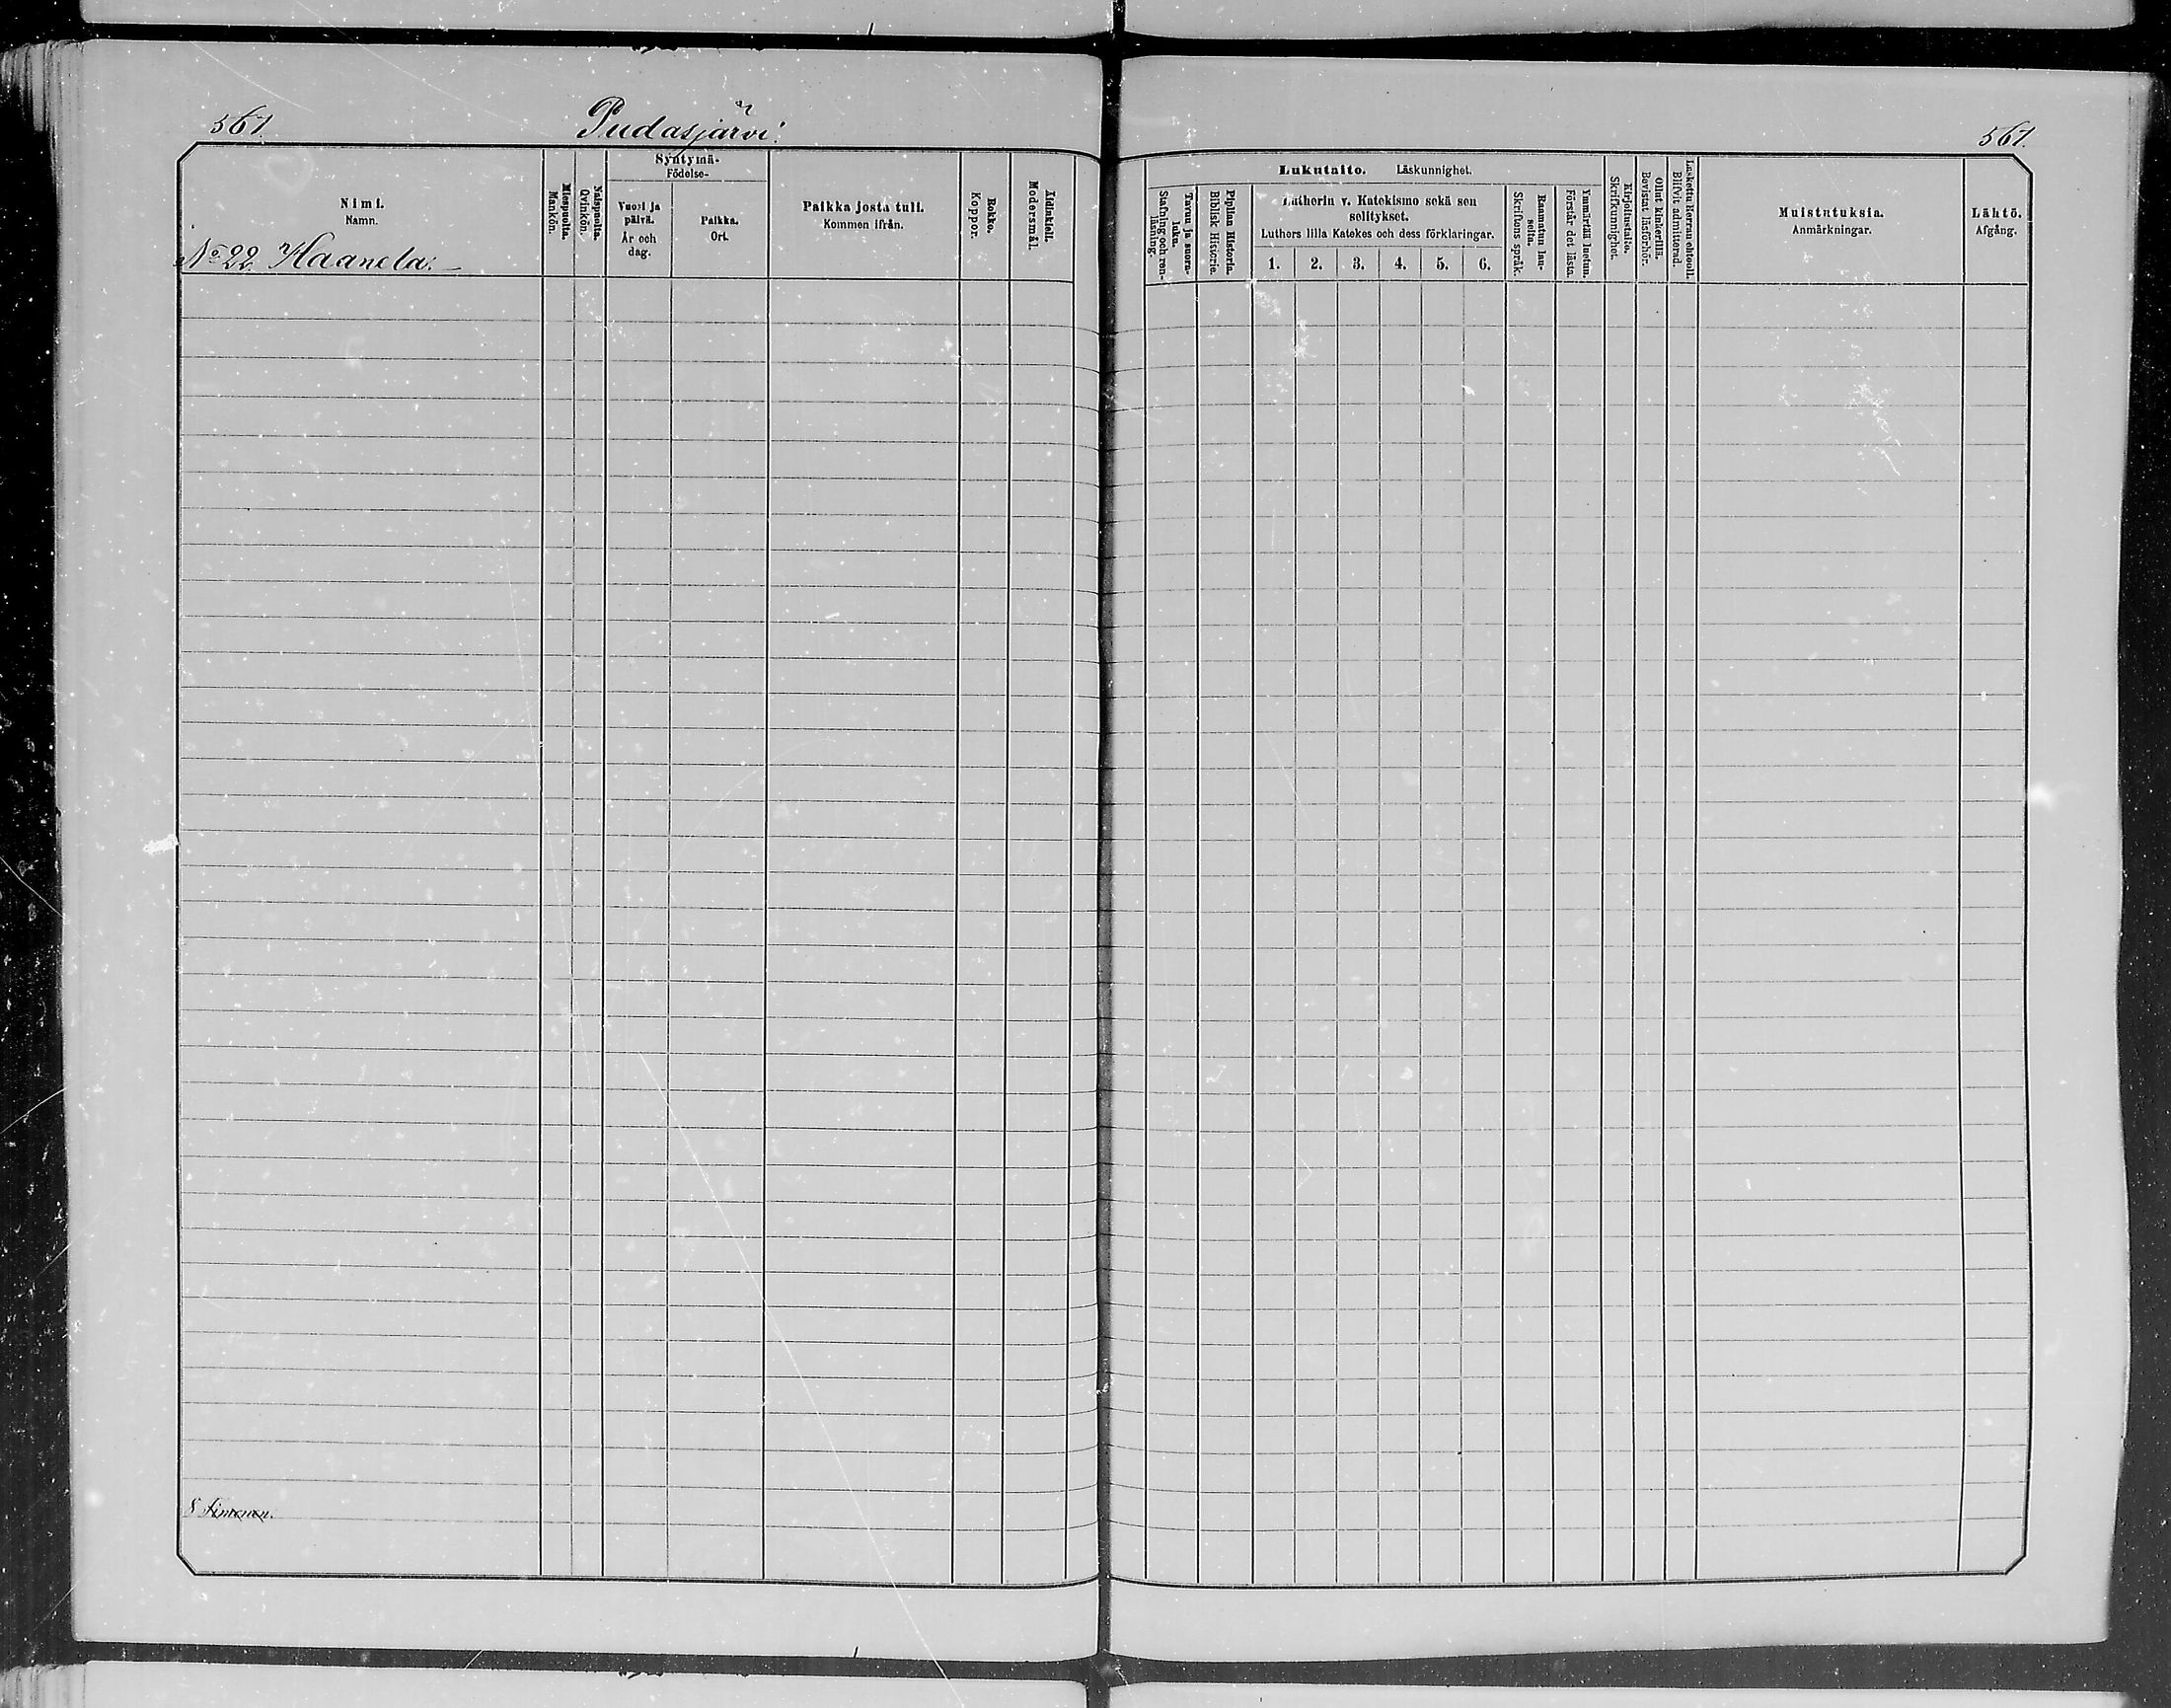 567.
Pudasjärvi.
567.
Nimi.
Namn.
No 22 Haanela.
Miespuolta.
Mankön.
Naispuolta.
Qvinkön.
Syntymä-
Födelse-
Vuosi ja
päivä.
År och
dag.
Paikka.
Ort.
Paikka josta tuli.
Kommen ifrån.
Rokko.
Koppor.
Äidinkieli.
Modersmål.
Lukutaito. Läskunnighet.
Tavuu ja suora-
luku.
Stafning och ren-
läsning.
Piplian Historia.
Biblisk Historie.
Lutherin v. Katekismo sekä sen
selitykset.
Luthers lilla Katekes och dess förklaringar.
1. 2. 3. 4. 5. 6.
Raamatun lau-
seita.
Skriftens språk.
Ymmärtää luetun.
Förstår det lästa.
Kirjoitustaito.
Skrifkunnighet.
Ollut kinkerillä.
Bevistat läsförhör.
Laskettu Herran ehtooll.
Blifvit admitterad.
Muistutuksia.
Anmärkningar.
Lähtö.
Afgång.